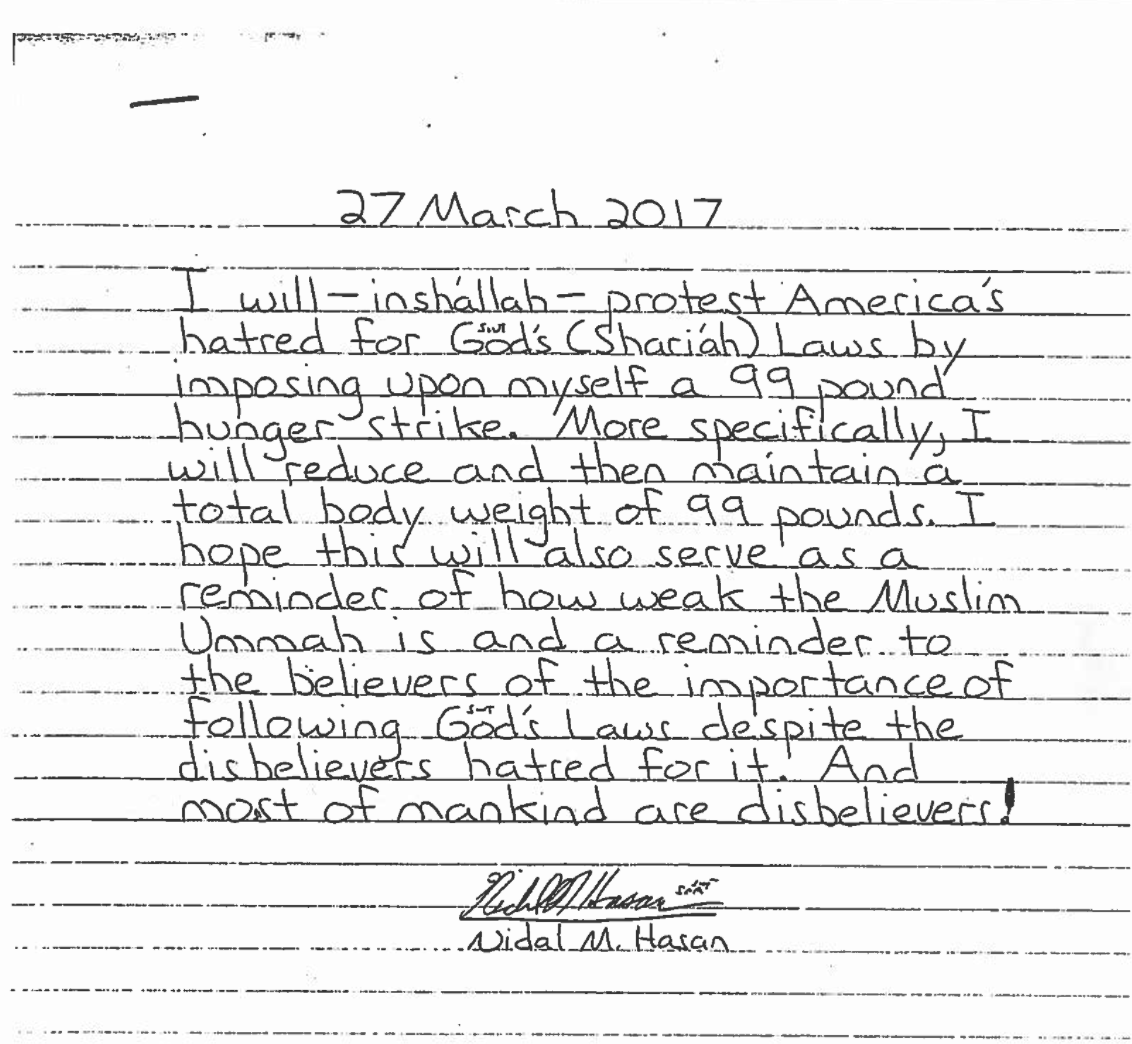 27 March 2017
I will - insha'allah - protest America's
hatred for God's SWT (Shari'ah) Laws by
imposing upon myself a 99 pound
hunger strike. More specifically, I
will reduce and then maintain a
total body weight of 99 pounds. I
hope this will also serve as a
reminder of how weak the Muslim
Ummah is and a reminder to
the believers of the importance of
following God's SWT Laws despite the
disbelievers hatred for it. And
most of mankind are disbelievers!
Nidal M. Hasan
Nidal M. Hasan